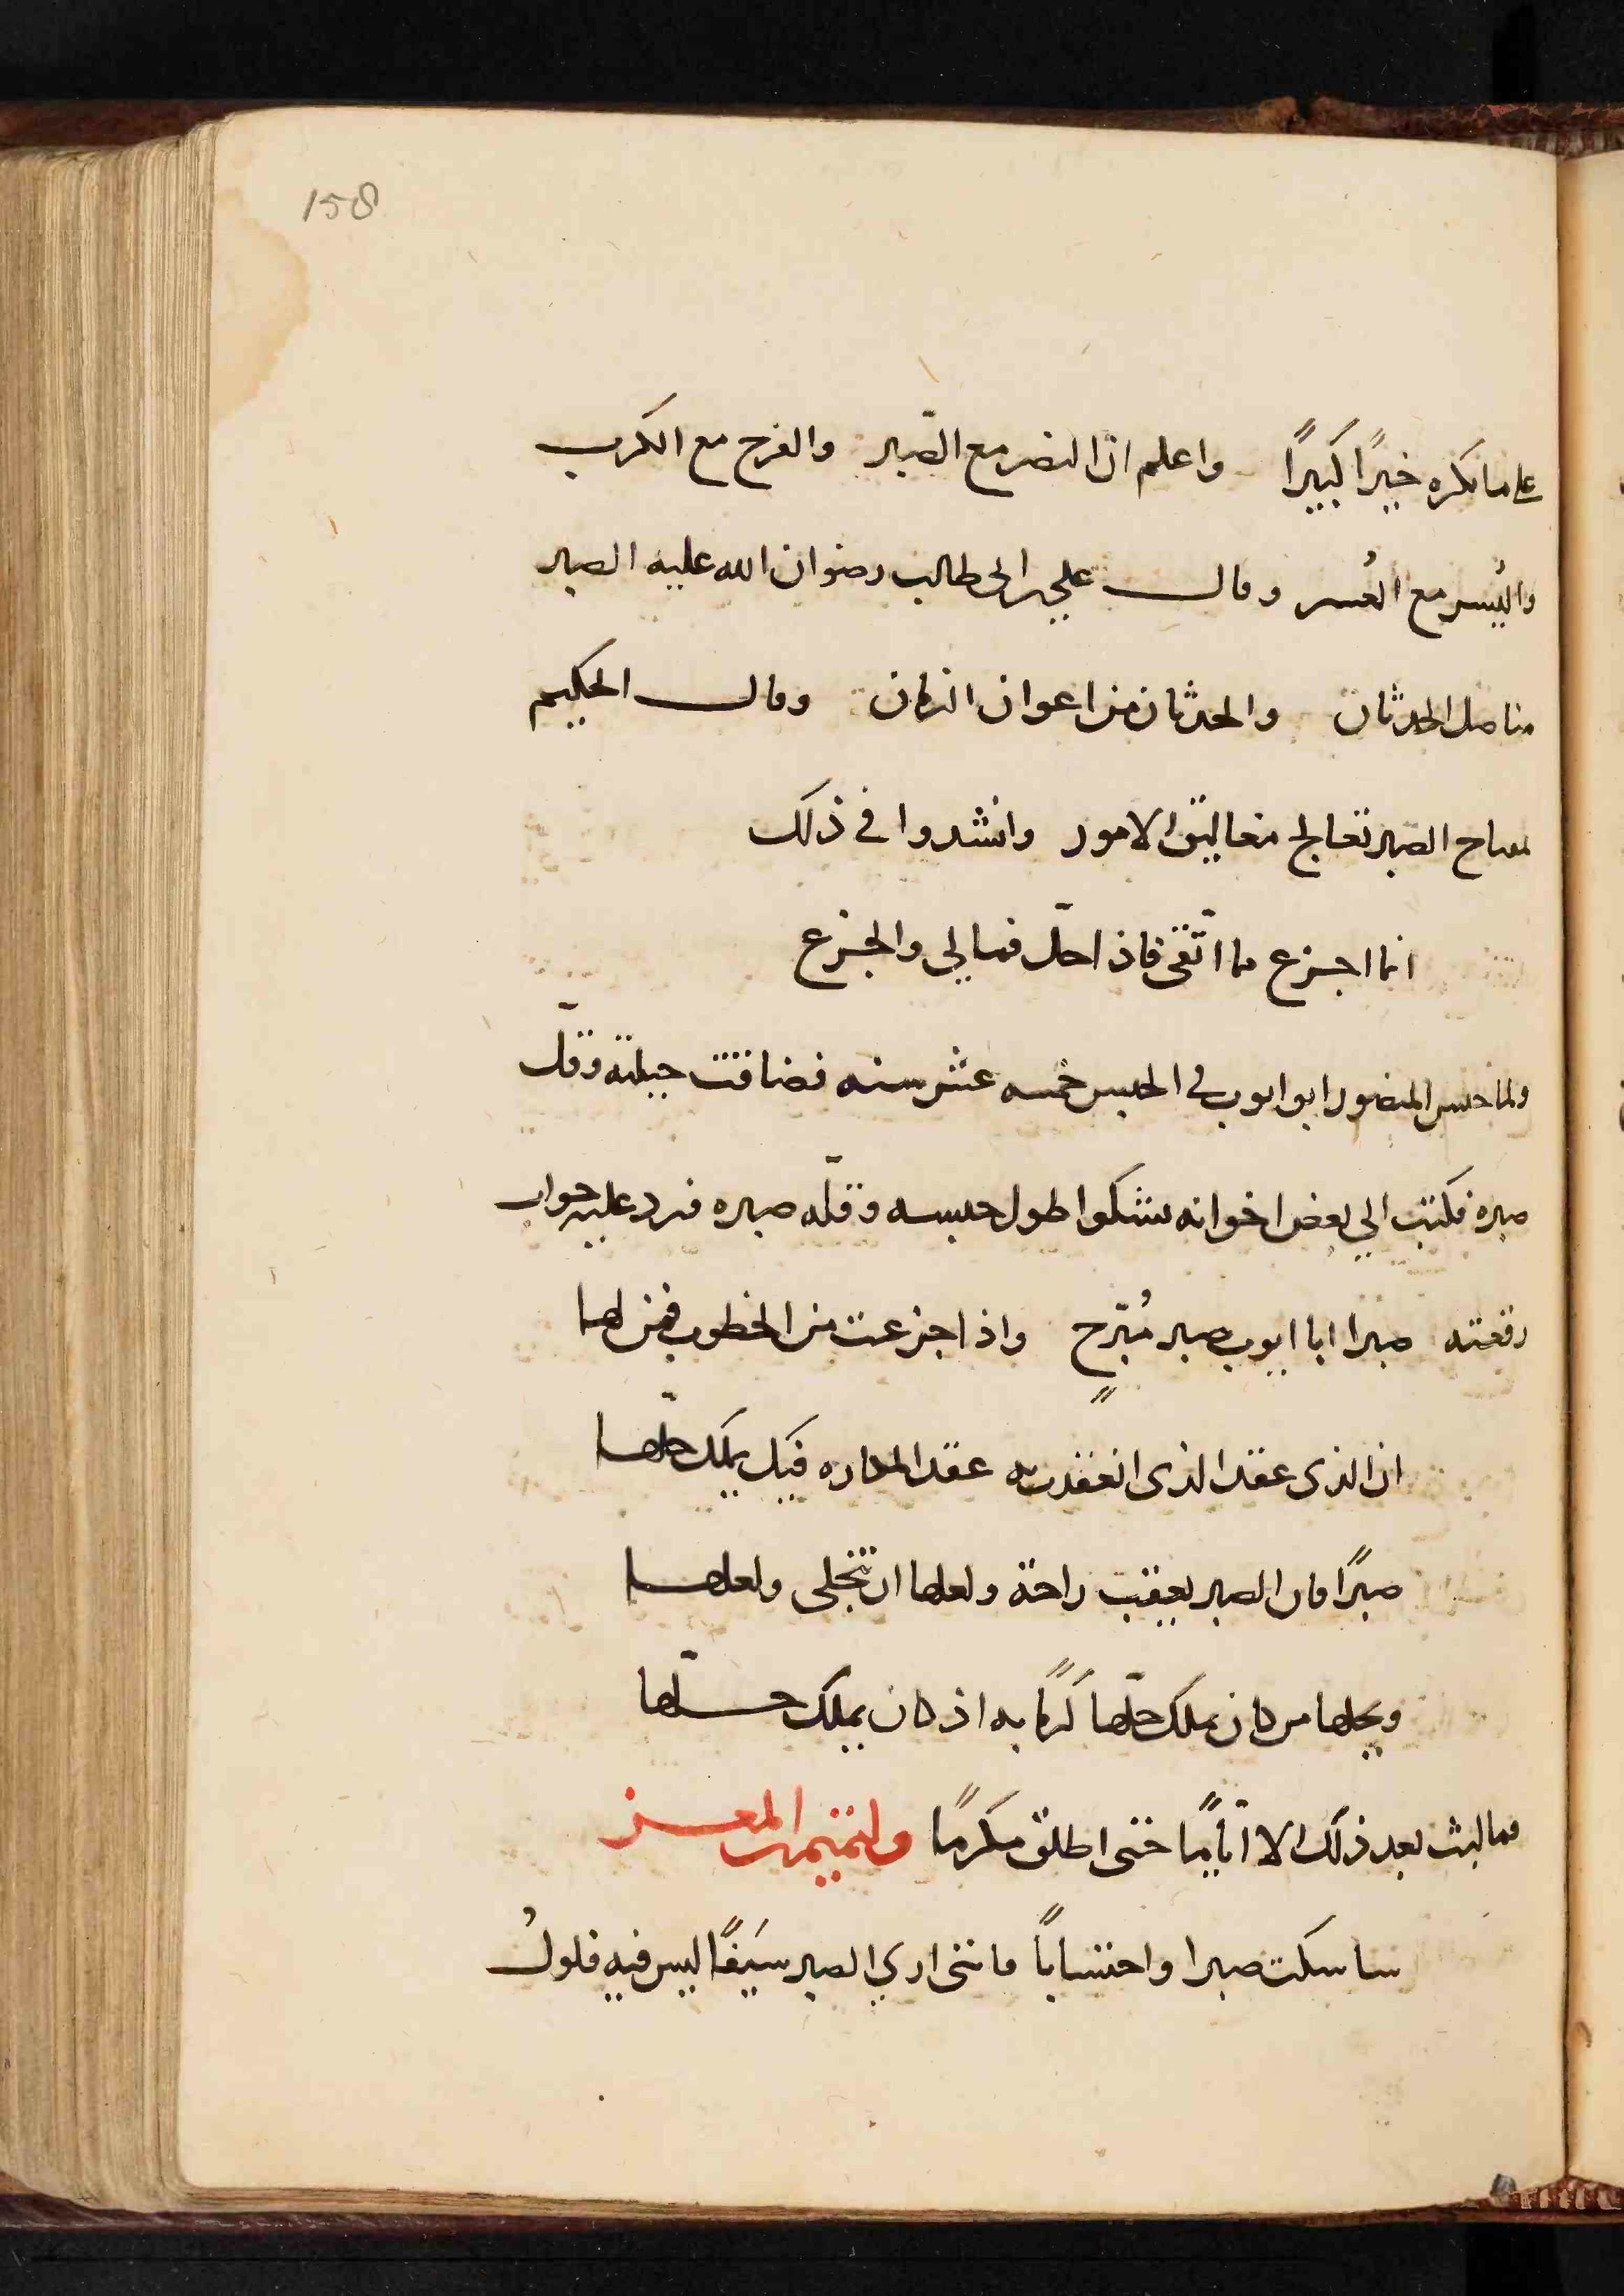 158
على ما تكره خيرًا كبيرًا واعلم ان النصر مع الصّبر والفرج مع الكرب
واليُسر مع العُسر وقال علي بن ابى طالب رضوان الله عليه الصبر
مناضل الحدثان والحدثان من اعوان الزمان وقال الحكيم
بمفتاح الصبر تعالج مغاليق الامور وانشدوا في ذلك
انما اجزع مما اتّقى فاذا حلّ فمالي والجزع
ولما حبس المنصور ابو ايوب في الحبس خمسه عشر سنه فضاقت حيلته وقلّ
صبره فكتب الي بعض اخوانه يشكوا طول حبسه وقلّه صبره فرد عليه جواب
رقعته صبرا ابا ايوب صبر مُبَرّح واذا جزعت من الخطوب فمن لها
ان الذى عقد الذى انعقدت به عقد المكاره فيك يملك حلّها
صبرًا فان الصبر يعقب راحة ولعلها ان تنجلى ولعلها
ويحلها من كان يملك حلّها كرمًا به اذ كان يملك حلّها
فما لبث بعد ذلك الا ايّامًا حتى اطلق مكرمًا ولتميم بن المعز
ساسكت صبرا واحتسابًا فانني اري الصبر سَيفًا ليس فيه فلولُ